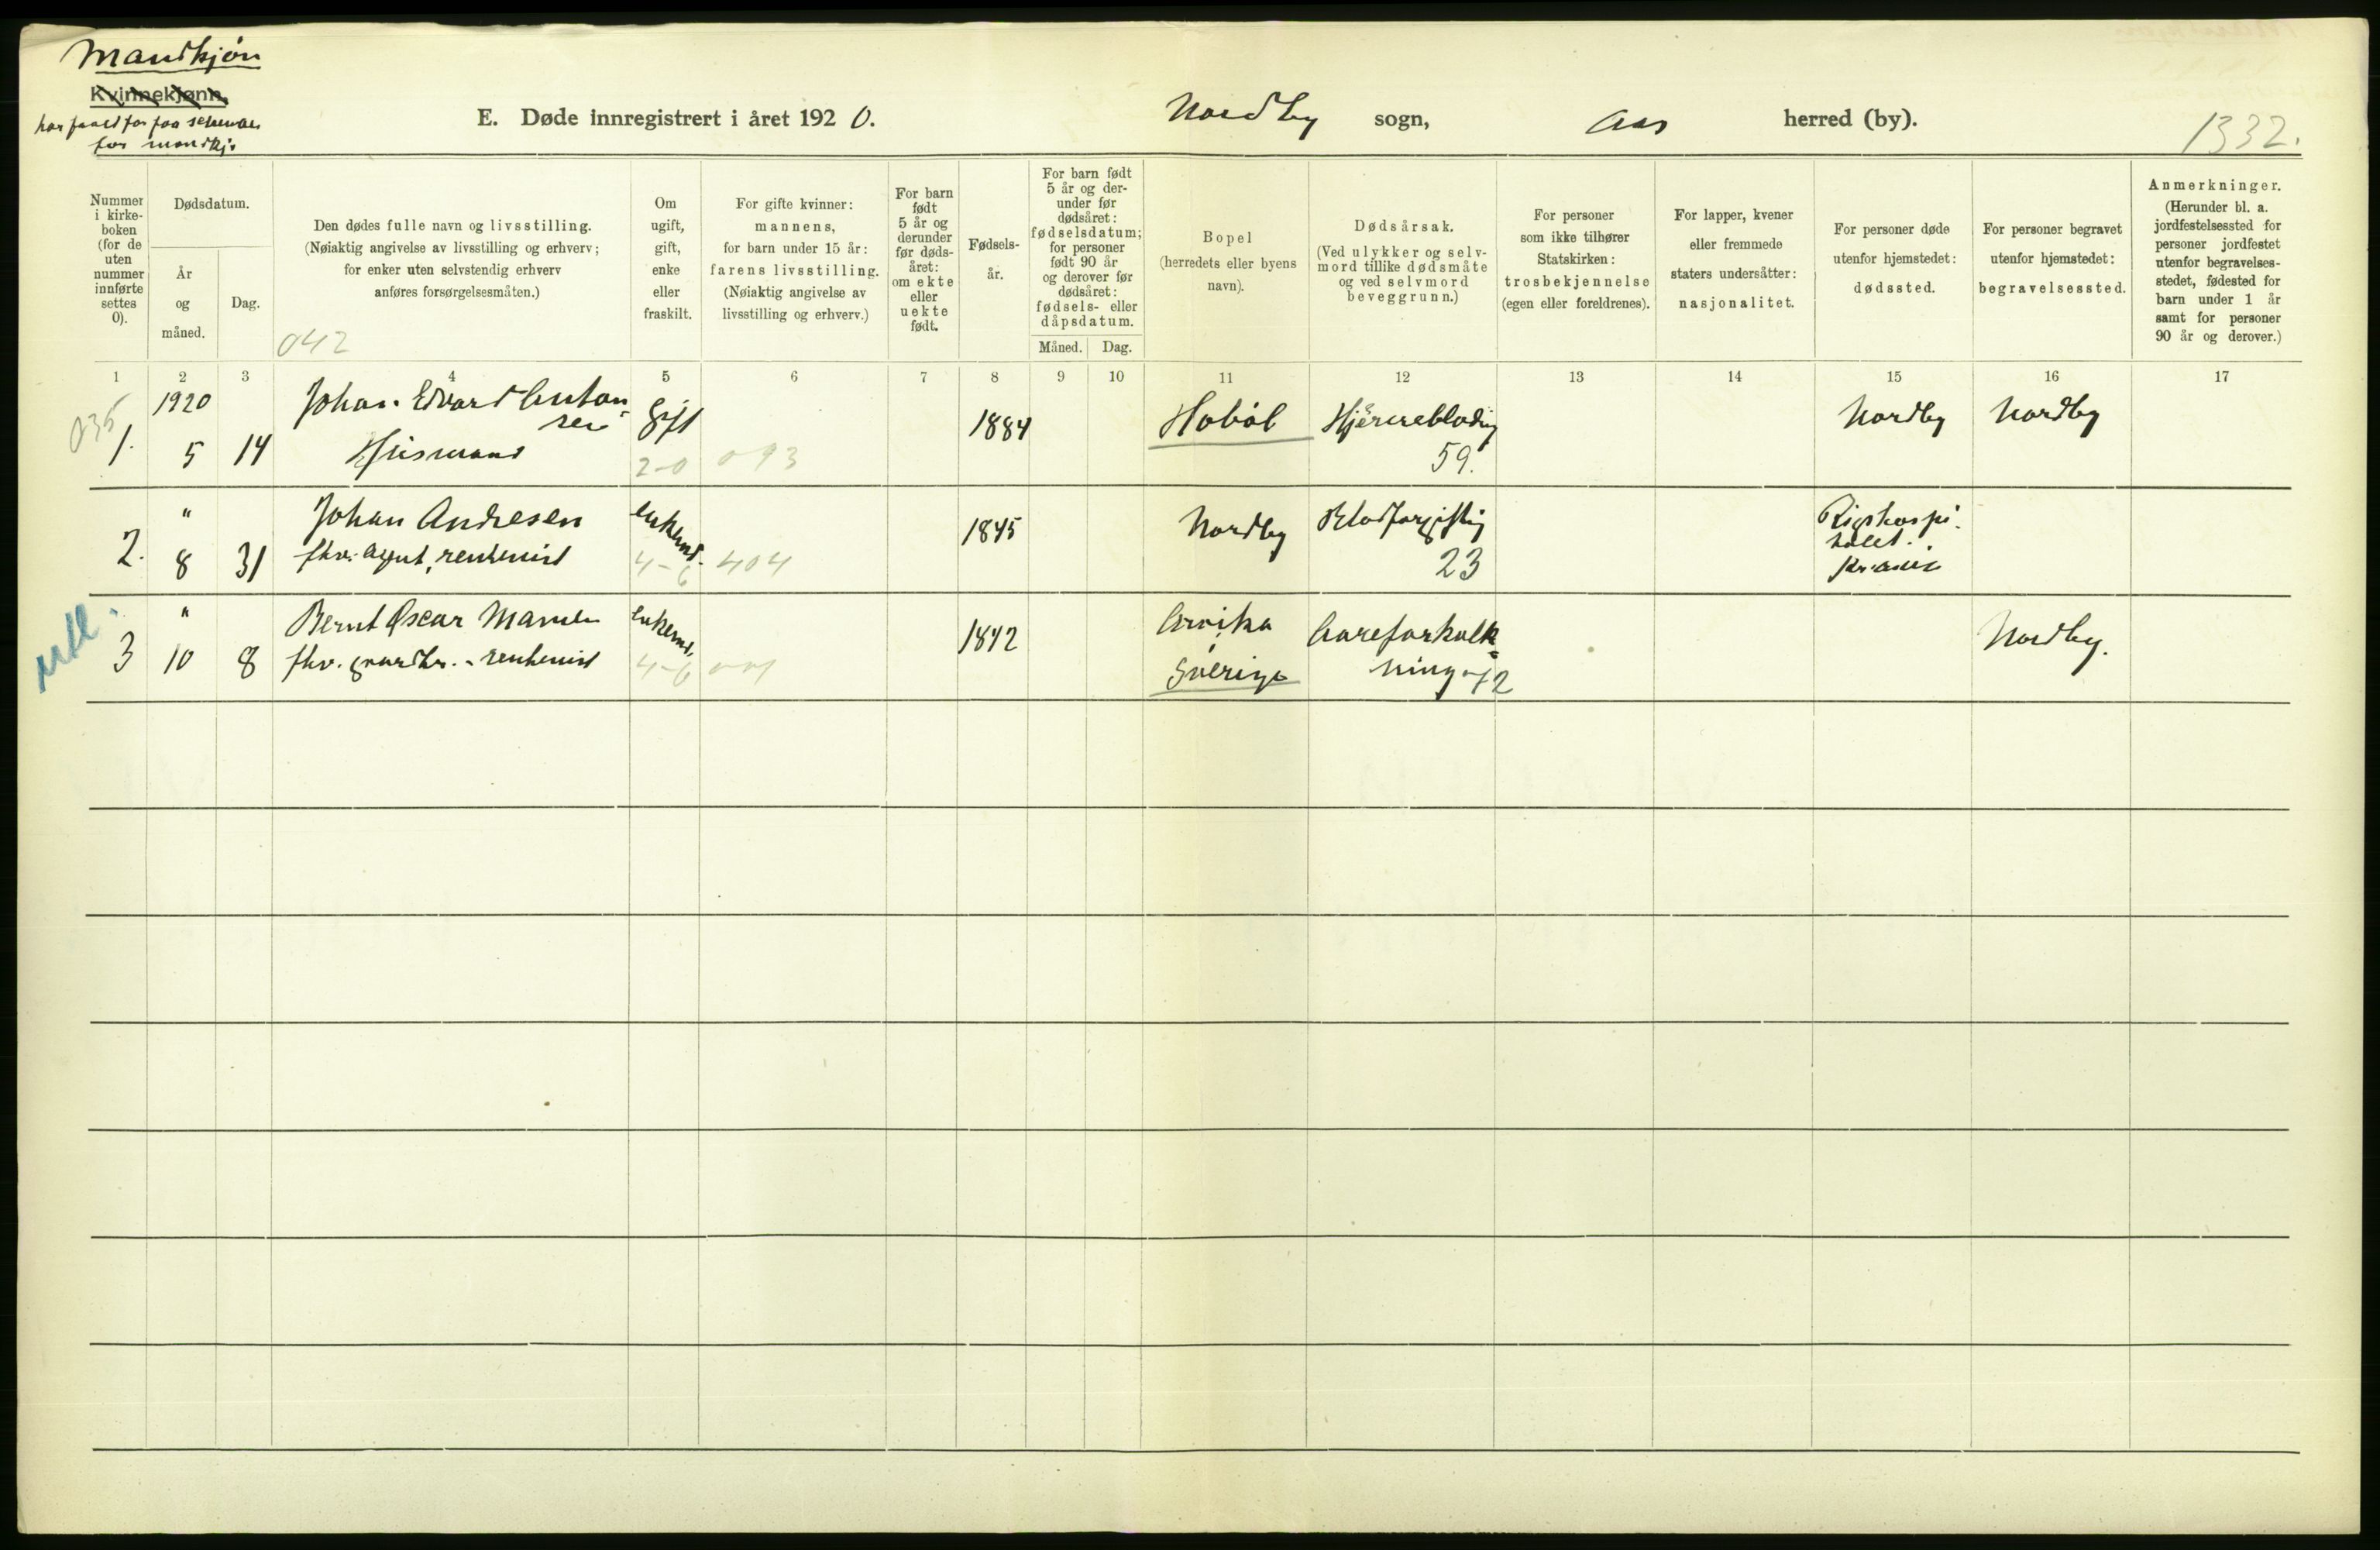 Mandkjøn
Kvinnekjønn.
har faaet for faa schemaer
for mandkj.
E. Døde innregistrert i året 1920.
Nordby sogn,
Aas herred (by).
1332.
Nummer
i kirke-
boken
(for de
uten
nummer
innførte
settes
0).
Dødsdatum.
År
og
måned.
Dag.
Den dødes fulle navn og livsstilling.
(Nøiaktig angivelse av livsstilling og erhverv;
for enker uten selvstendig erhverv
anføres forsørgelsesmåten.)
042
Om
ugift,
gift,
enke
eller
fraskilt.
For gifte kvinner:
mannens,
for barn under 15 år:
farens livsstilling.
(Nøiaktig angivelse av
livsstilling og erhverv.)
For barn
født
5 år og
derunder
før døds-
året:
om ekte
eller
uekte
født.
Fødsels-
år.
For barn født
5 år og der-
under før
dødsåret:
fødselsdatum;
for personer
født 90 år
og derover før
dødsåret:
fødsels- eller
dåpsdatum.
Måned.
Dag.
Bopel
(herredets eller byens
navn).
Dødsårsak.
(Ved ulykker og selv-
mord tillike dødsmåte
og ved selvmord
beveggrunn.)
For personer
som ikke tilhører
Statskirken:
trosbekjennelse
(egen eller foreldrenes).
For lapper, kvener
eller fremmede
staters undersåtter:
nasjonalitet.
For personer døde
utenfor hjemstedet:
dødssted.
For personer begravet
utenfor hjemstedet:
begravelsessted.
Anmerkninger.
(Herunder bl. a.
jordfestelsessted for
personer jordfestet
utenfor begravelses-
stedet, fødested for
barn under 1 år
samt for personer
90 år og derover.)
1 2 3 4 5 6 7 8 9 10 11 12 13 14 15 16 17
036
1.
1920
5
14
Johan Edvard Anton-
sen
Husmand
Gift
2-0
093
1884
Hobøl
Hjerneblødnig
59.
Nordby
Nordby
2.
"
8
31
Johan Andresen
fhv. agent, rentenist
enkemd.
4-6
404
1845
Nordby
Blodforgiftnig
23
Rigshospi-
talet.
Kr.ania
3
"
10
8
Bernt Oscar
fhv. gaardbr. - rentenist
enkemd.
4-6
1842
Arvika
Sverige
Aareforkalk-
ning
72
Nordby.